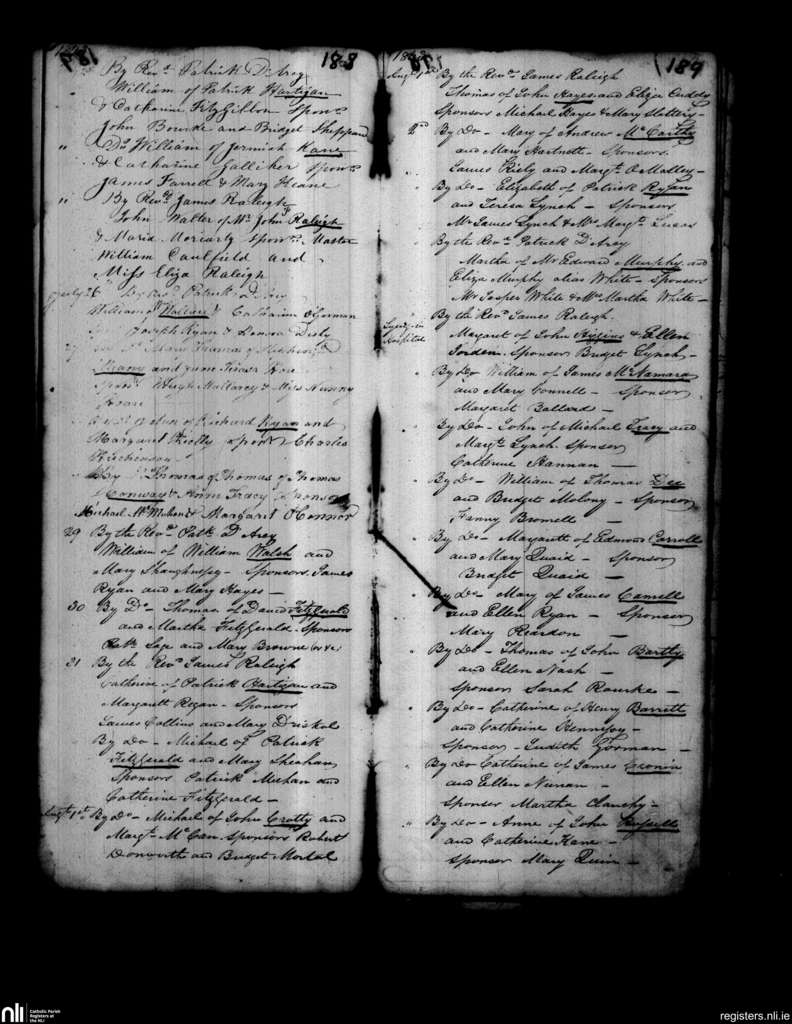 188
By Revd. Patrick D'Arcy
William of Patrick Hartigan
& Catharine FitzGibbon Sponrs.
John Bourke and Bridget Sheppard
" Do. William of Jermiah Kane
& Catharine Galliher Sponrs.
James Farrett & Mary Keane
" By Revd. James Raleigh
John Walter of Mr. John Raleigh
& Maria Moriarty Sponrs. Master
William Caulfield and
Miss Eliza Raleigh
July 26 Patrick D'Arcy
William of Wallace & Catharine O'Gorman
Joseph Ryan &
27 Thomas of
and
Hugh Mullaney & Miss
of Richard Ryan and
Margaret Rielly Sponrs. Charles
By Thomas of Thomas of Thomas
Conway & Anne Tracy Sponsors
Michael McMahon & Margaret O'Connor
29 By the Revd. Patk. D'Arcy
William of William Walsh and
Mary Shaughnessy - Sponsors James
Ryan and Mary Hayes -
30 By Do - Thomas of David FitzGerald
and Martha FitzGerald - Sponsors
Patk. Sage and Mary Browne
31 By the Revd. James Raleigh
Catherine of Patrick Hartigan and
Margarett Ryan - Sponsors
James Collins and Mary Driskol
By Do - Michael of Patrick
FitzGerald and Mary Sheahan
Sponsors Patrick Mehan and
Catherine FitzGerald -
Augt. 1st. By Do - Michael of John Crotty and
Margt. McCan Sponsors Robert
Donworth and Bridget Mortal
189
Augt. 1st. By the Revd. James Raleigh
Thomas of John Hayes and Eliza
Sponsors Michael Hayes & Mary Slattery -
2nd By Do - Mary of Andrew McCarthy
and Mary Hartnett - Sponsors
James Kiely and Margt. O'Malley -
" By Do - Elizabeth of Patrick Ryan
and Teresa Lynch - Sponsors
Mr. James Lynch & Mrs. Margt. Lucas
" By the Revd. Patrick D'Arcy
Martha of Mr. Edward Murphy and
Eliza Murphy alias White - Sponsors
Mr. Jasper White & Mrs. Martha White -
" By the Revd. James Raleigh
Lying-in Hospital
Margaret of John Higgins & Ellen
Jordan - Sponsor Bridget Lynch -
" By Do William of James McNamara
and Mary Connell - Sponsor
Margaret Ballard -
" By Do - John of Michael Tracy and
Margt. Lynch Sponsor
Catherine Hannan -
" By Do - William of Thomas Dee
and Bridget Molony - Sponsor
Fanny Bromell -
" By Do - Margarett of Edmond Carroll
and Mary Quaid - Sponsor
Bridget Quaid -
" By Do - Mary of James Camell
and Ellen Ryan - Sponsor
Mary Reardon -
" By Do - Thomas of John Bartly
and Ellen Nash -
Sponsor Sarah Rourke -
" By Do - Catherine of Henry Barrett
and Catherine Hennessy -
Sponsor - Judith Gorman -
" By Do Catherine of James Cronin
and Ellen Nunan -
Sponsor Martha Clanchy -
" By Do - Anne of John Russell
and Catherine Kane -
Sponsor Mary Quin -
nli
Catholic Parish
Registers at
the NLI
registers.nli.ie